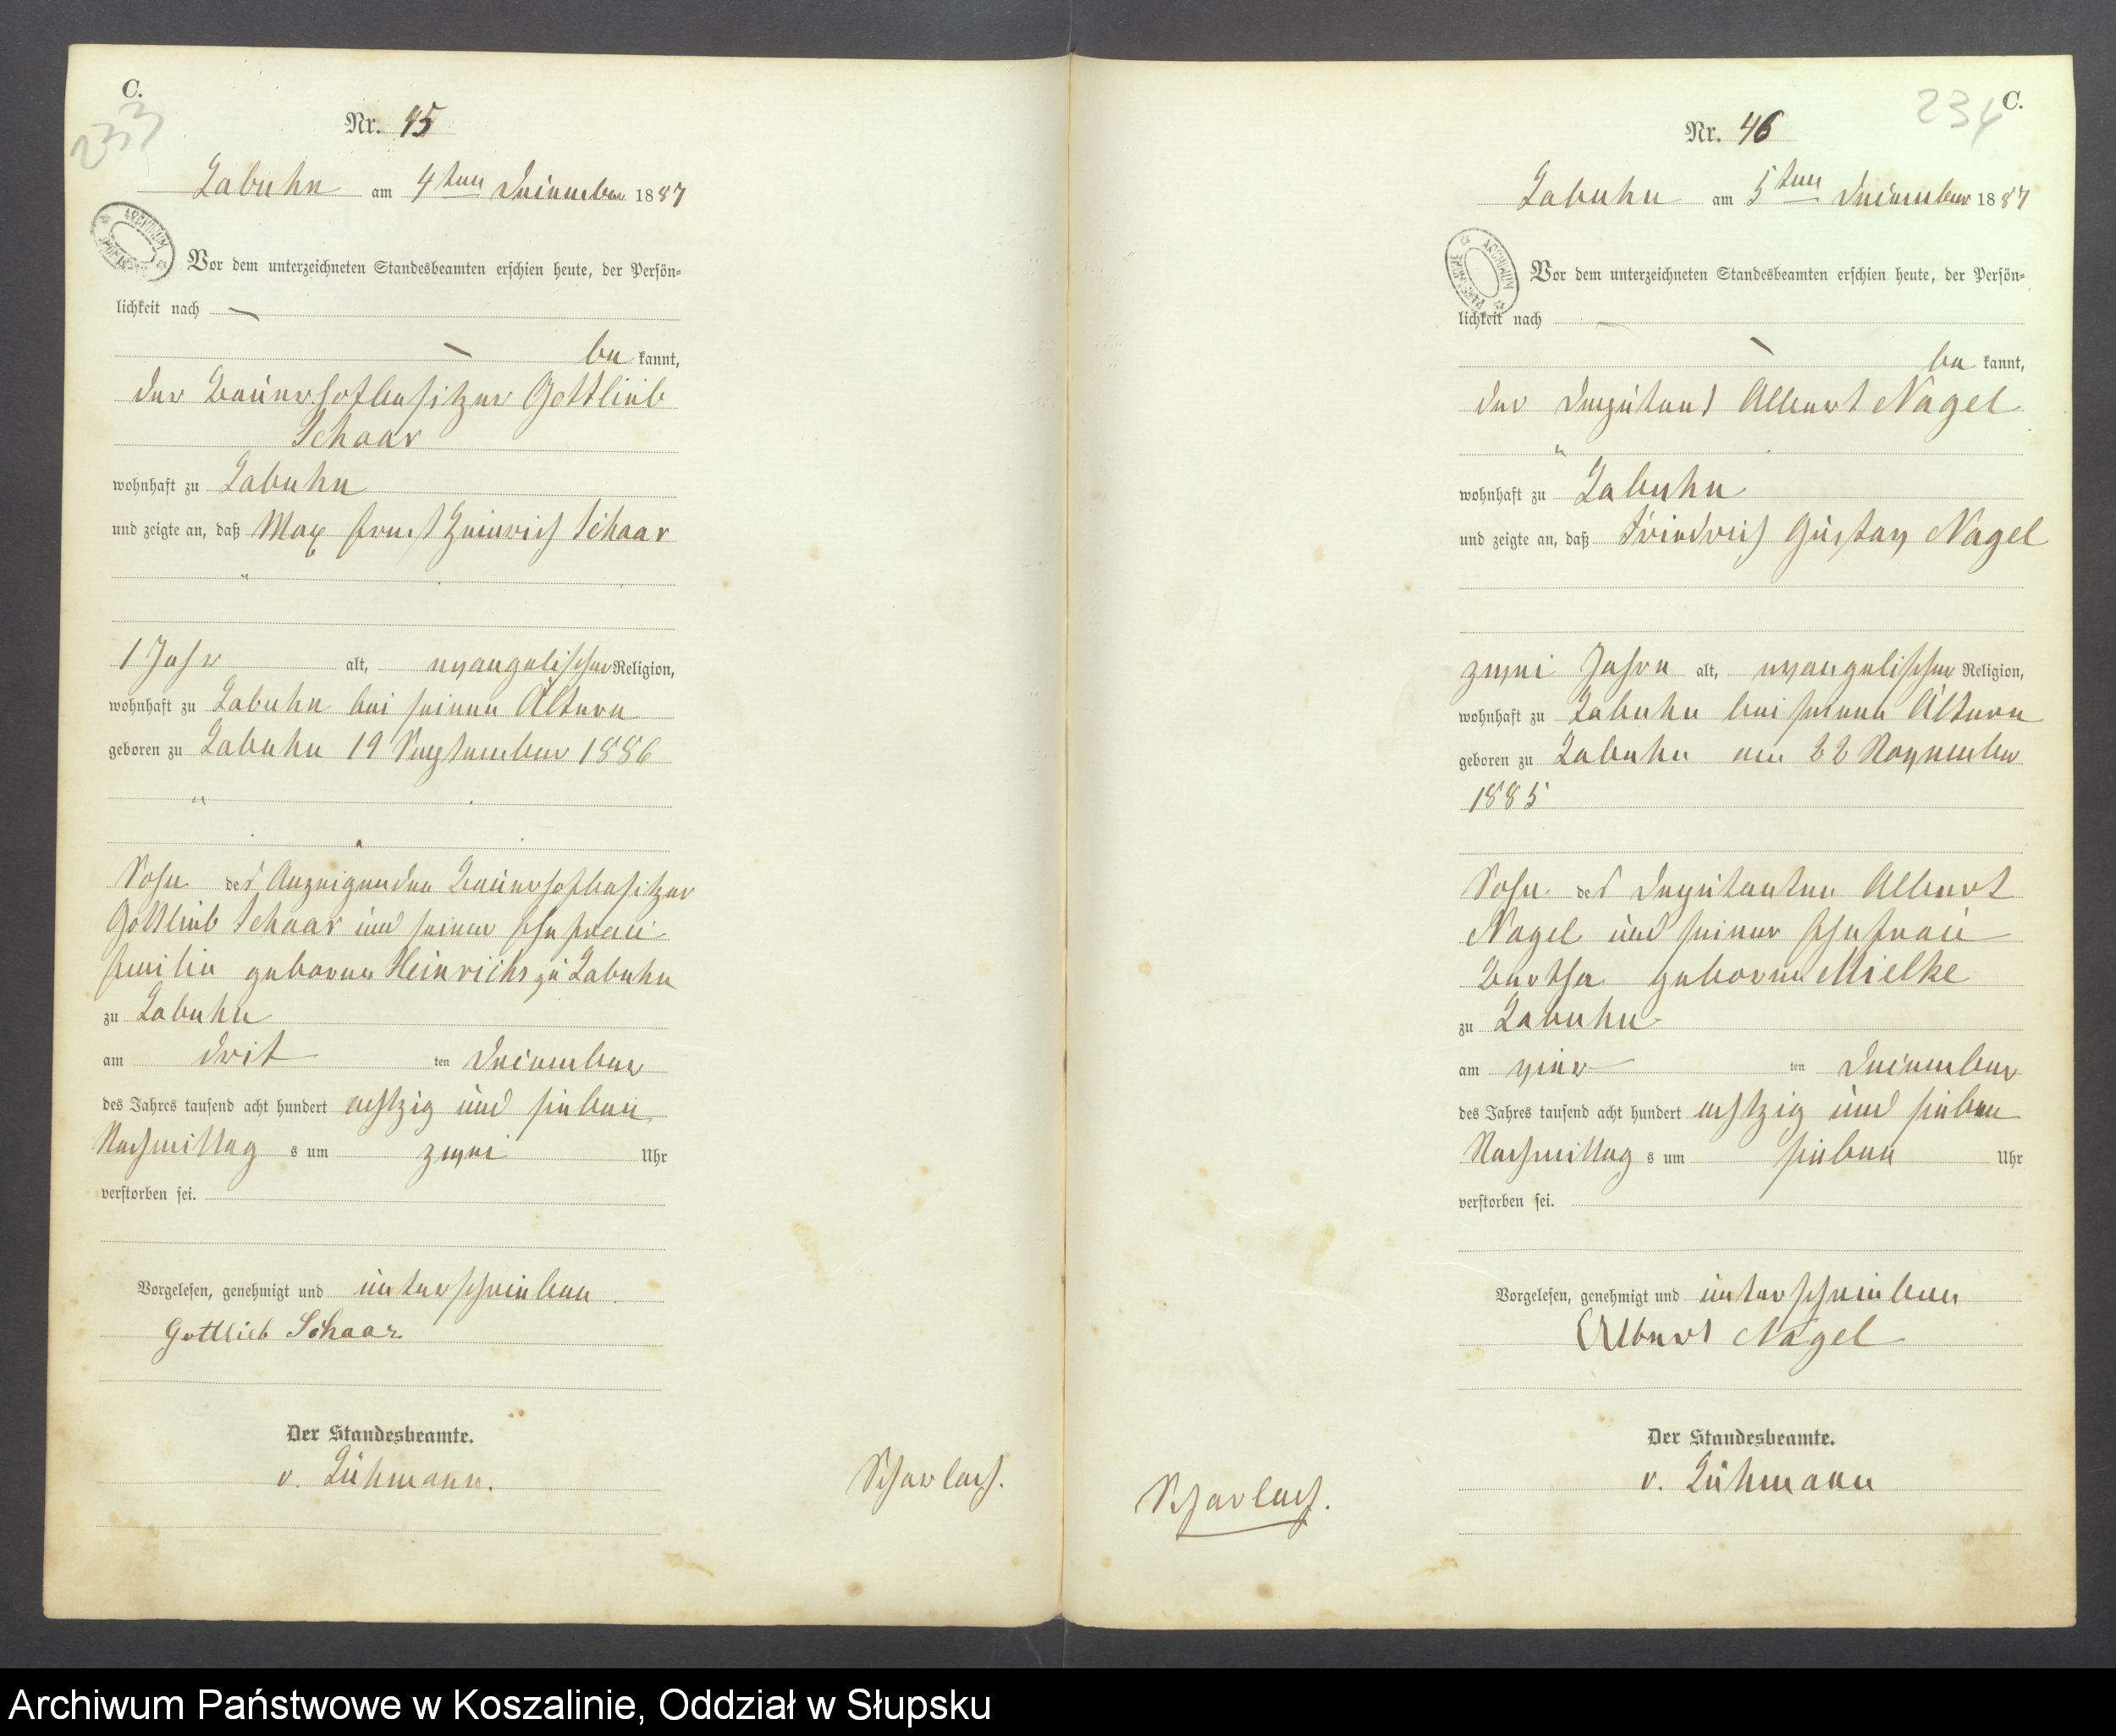 C.
233
Nr. 45
Labuhn am 4ten December 1887
Vor dem unterzeichneten Standesbeamten erschien heute, der Persön=
lichkeit nach
be kannt,
der Bauerhofbesitzer Gottlieb
Schaar
wohnhaft zu Labuhn
und zeigte an, daß Max Ernst Heinrich Schaar
1 Jahr alt, evangelischer Religion,
wohnhaft zu Labuhn bei seinen Ältern
geboren zu Labuhn 19 September 1886
Sohn des Anzeigenden Bauerhofbesitzer
Gottlieb Schaar und seiner Ehefrau
Emilie geborne Heinrichs zu Labuhn
zu Labuhn
am drit ten December
des Jahres tausend acht hundert achtzig und sieben
Nachmittag s um zwei Uhr
verstorben sei.
Vorgelesen, genehmigt und unterschrieben
Gottlieb Schaar
Der Standesbeamte.
v. Lühmann.
Scharlach.
234
C.
Nr. 46
Labuhn am 5ten December 1887
ARCHIWUM
Vor dem unterzeichneten Standesbeamten erschien heute, der Persön=
lichkeit nach
be kannt,
der Deputant Albert Nagel
wohnhaft zu Labuhn
und zeigte an, daß Friedrich Gustav Nagel
zwei Jahre alt, evangelischer Religion,
wohnhaft zu Labuhn bei seinen Ältern
geboren zu Labuhn am 22 November
1885
Sohn des Deputanten Albert
Nagel und seiner Ehefrau
Bertha geborne Mielke
zu Labuhn
am vier ten December
des Jahres tausend acht hundert achtzig und sieben
Nachmittag s um sieben Uhr
verstorben sei.
Vorgelesen, genehmigt und unterschrieben
Albert Nagel
Der Standesbeamte.
v. Lühmann
Scharlach.
Archiwum Państwowe w Koszalinie, Oddział w Słupsku